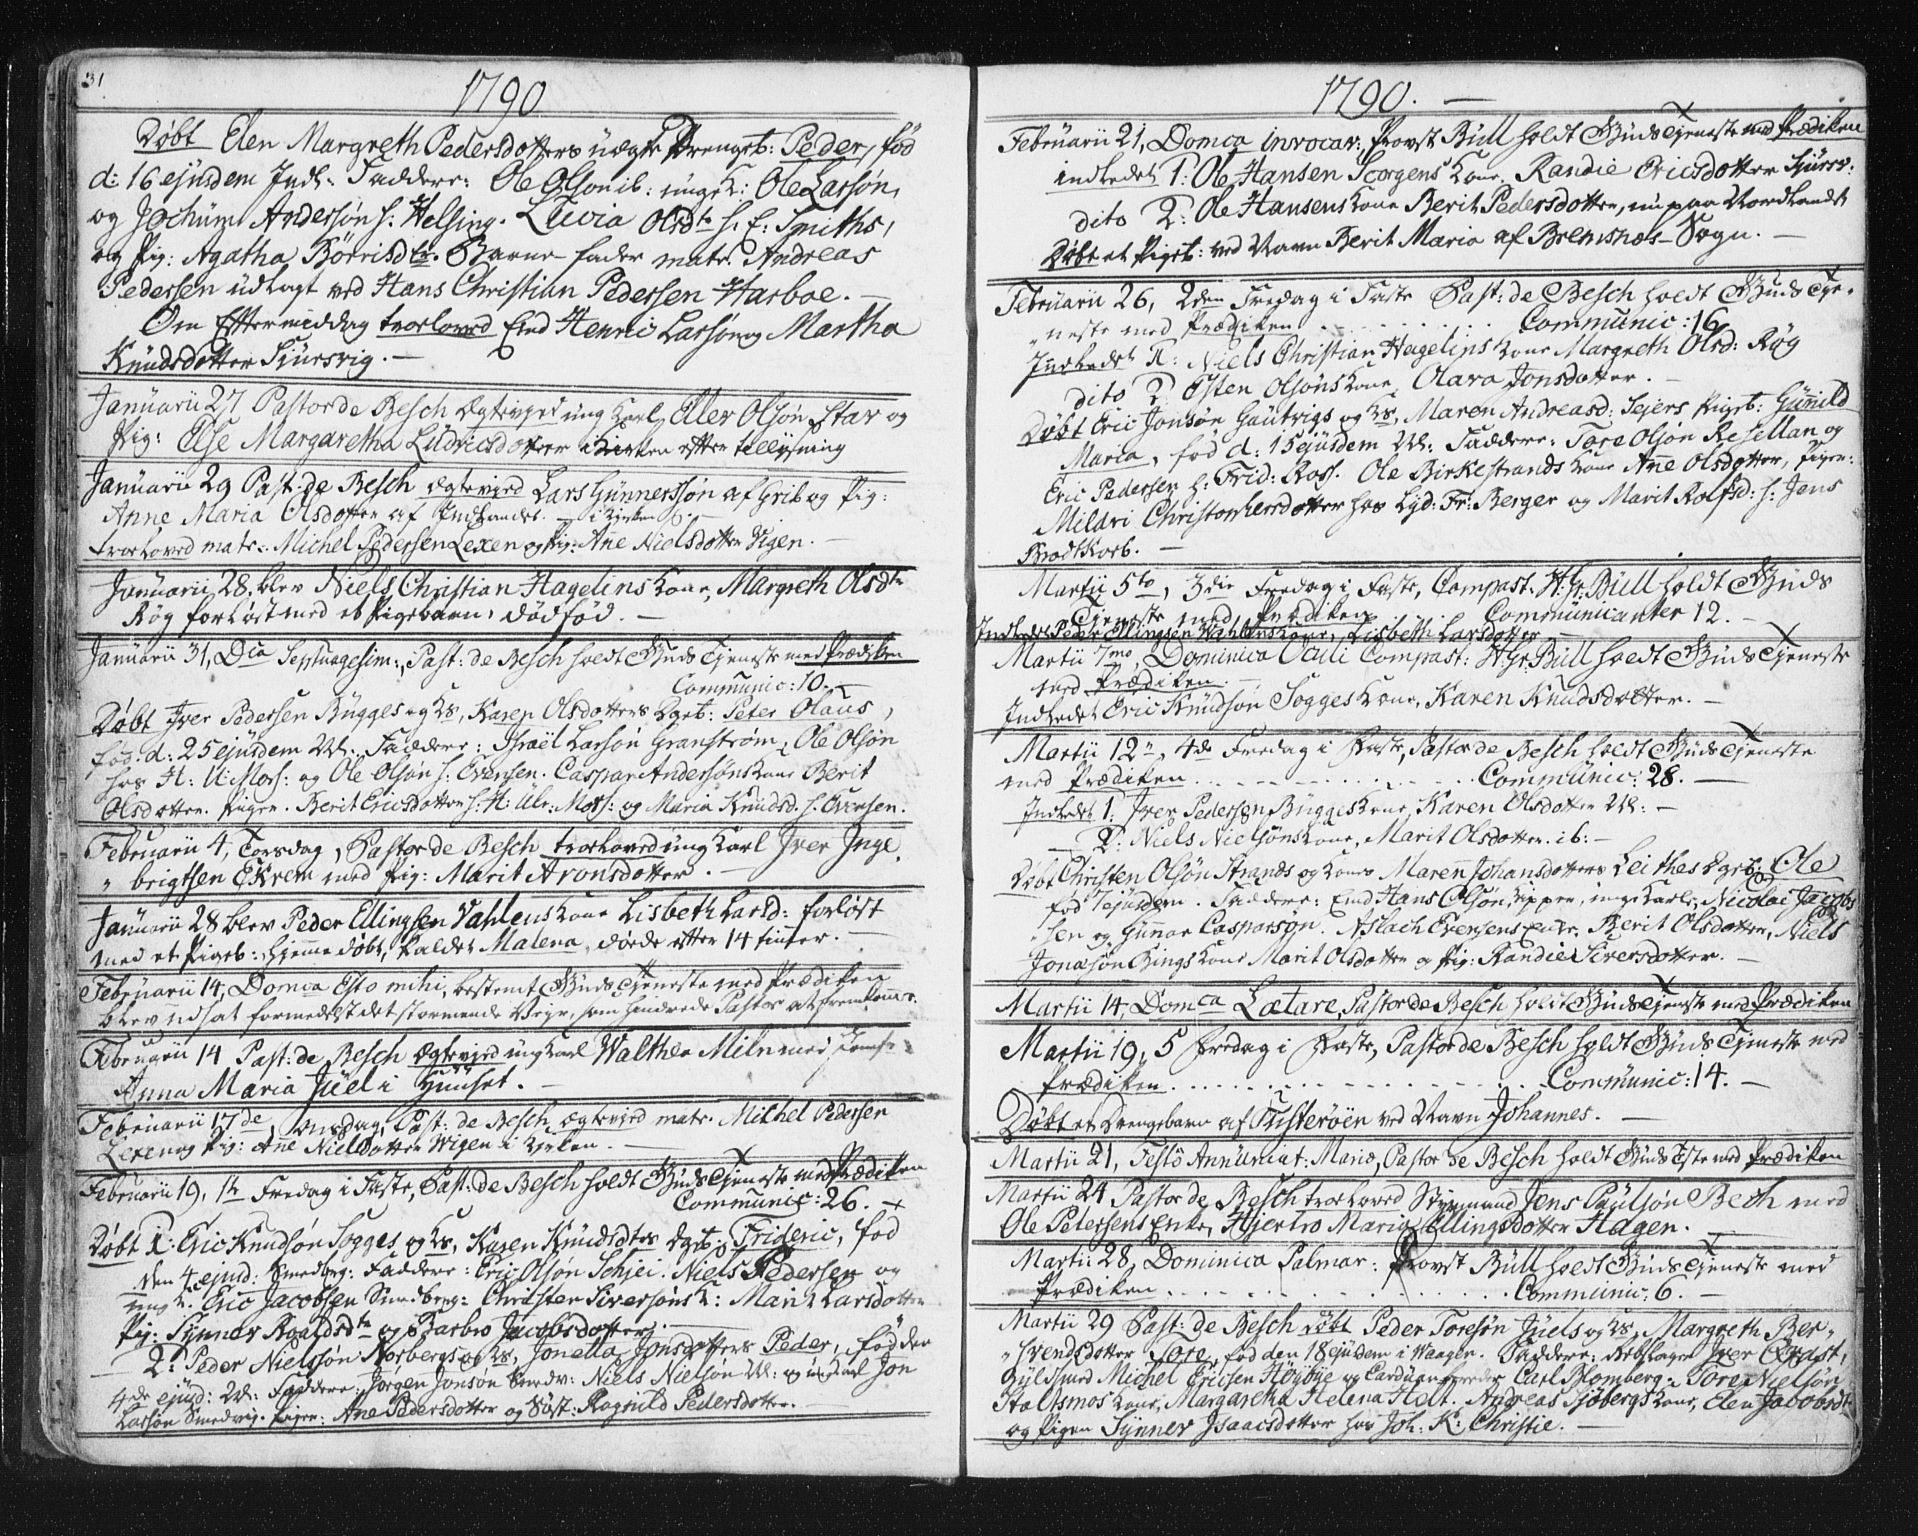 31
1790
Døbt Elen Margreth Pedersdotters uægte Drengeb: Peder, fød
d: 16 ejusdem Indl: Faddere: Ole Olson ib: ungk: Ole Larsøn,
og Jochum Andersøn h. Helsing. Livia Olsdtr h. E: Smiths,
og Pig: Agatha Børrisdtr. Barne-fader matr. Andreas
Pedersen udlagt ved Hans Christian Pedersen Harboe. —
Om Eftermiddag troeloved Emd Henric Larsøn og Martha
Knudsdotter Siursvig. —
Januarii 27 Pastor de Besch Ægtevyed ung Karl Eller Olsøn Star og
Pig: Else Margaretha Ludvicsdotter i Kirken efter tillysning
Januarii 29 Past: de Besch Ægtevyed Lars Gunnersøn af Grib og Pig:
Anne Maria Olsdotter af Indlandet. — i Kirken
troeloved matr: Michel Pedersen Lexen og Pig: Anne Nielsdotter Vigen. —
Januarii 28, blev Niels Christian Hagelins Kone, Margreth Olsdtr
Røg forløst med et Pigebarn, dødfød. —
Januarii 31, Dca Septuagesim:, Past: de Besch holdt Guds Tjeneste med Prædiken
Communic: 10. —
Døbt Iver Pedersen Bugges og Ks, Karen Olsdotters Dgeb: Peter Olaus,
fød d: 25 ejusdem Vl. Faddere: Israël Larsøn Granstrøm, Ole Olsøn
hos H: U: Mors: og Ole Olsøn h: Evensen. Caspar Andersøns Kone Berit
Olsdotter. Piger. Berit Ericsdotter h: H: Ulr: Mors: og Maria Knudsd. h. Evensen.
Februarii 4, Torsdag, Pastor de Besch troeloved ung Karl Iver Inge,
„ brigtsen Ekrem med Pig: Marit Aronsdotter. —
Januarii 28 blev Peder Ellingsen Vahlens Kone Lisbeth Larsd: forløst
med et Pigeb: hjemme døbt, kaldet Malena, døde efter 14 timer. —
Februarii 14, Domca Esto mihi, bestemt Guds Tjeneste med Prædiken
blev udsat formedelst det stormende Veyr, som hindrede Pastor at fremkomme.
Februarii 14 Past: de Besch Ægtevyed ung Karl Walther Miln med Jomfr:
Anna Maria Juel i Huuset. —
Februarii 17de, Onsdag, Past: de Besch Ægtevyed matr. Michel Pedersen
Lexen og Pig: Ane Nielsdotter Wigen i Kirken. —
Februarii 19, 1te Fredag i Faste, Past: de Besch holdt Guds Tjeneste med Prædiken
Communic: 26. —
Døbt 1: Eric Knudsøn Sogges og Ks, Karen Knudsdtrs Dgeb: Frideric, fød
den 4 ejusd: Smedberg: Faddere: Eric Olsøn Schjei. Niels Pedersen og
ung k. Eric Jacobsen Smedberg: Christen Siversøns k: Marit Larsdotter
Pig: Synnev Roaldsdtr og Barbro Jacobsdotter. —
2: Peder Nielsøn Norbergs og Ks, Jonetta Jonsdotters Peder, fød den
4de ejusd: Vl: Faddere: Jørgen Jonsøn Smedv: Niels Nielsøn Vl: og ung karl Jon
Larsøn Smedvig. Piger: Ane Pedersdotter og Søst: Ragnild Pedersdotter. —
1790. —
Februarii 21, Domca invocav:, Provst Bull holdt Guds Tjeneste med Prædiken
indledet 1: Ole Hansen Scorgens Kone, Randie Ericsdotter Siursv:
dito 2: Ole Hansens Kone Berit Pedersdotter, en paa Nordlandet
Døbt et Pigeb: ved Navn Berit Maria af Bremsnæs-Sogn. —
Februarii 26, 2den Fredag i Faste Past: de Besch holdt Guds Tje-
„ neste med Prædiken . . . . . Communic: 16
Indledet 1: Niels Christian Hagelins Kone Margreth Olsd: Røg
dito 2: Esten Olsøns Kone, Olava Jonsdotter. —
Døbt Eric Jonsøn Gautvigs og Ks, Maren Andreasd: Sejers Pigeb: Gunild
Maria, fød d. 15 ejusdem Vl: Faddere: Tore Olsøn Resellan og
Eric Pedersen h: Frid: Ros:. Ole Birkestrands Kone Anne Olsdotter, Pigen:
Mildri Christophersdotter hos Lyd: Fr: Berger og Marit Rolfsd: h: Jens
Brodtkorb. —
Martii 5to, 3die Fredag i Faste, Compast. H. Hr. Bull holdt Guds
Tjeneste med Prædiken . . . Communicanter 12. —
Indledet Peder Ellingsen Vahlens Kone, Lisbeth Larsdotter —
Martii 7mo, Dominica Oculi Compast: H. Hr. Bull holdt Guds Tjeneste
med Prædiken. —
Indledet Eric Knudsøn Sogges Kone, Karen Knudsdotter. —
Martii 12te, 4de Fredag i Faste, Pastor de Besch holdt Guds Tjeneste
med Prædiken . . . . . Communic: 28. —
Indledet 1: Iver Pedersen Bugges Kone, Karen Olsdotter Vl: —
— 2: Niels Nielsøns Kone, Marit Olsdotter. ib: —
Døbt Christen Olsøn Strands og Kones Maren Johansdotters Leithes Dgeb: Ole
fød 7 ejusdem. Faddere: Emd Hans Olsøn, ungekarle, Nicolai Jacob-
„ sen og Gunar Casparsøn. Aslach Evensens Enke, Berit Olsdotter, Niels
Jonasøn Bings Kone Marit Olsdotter og Pig: Randie Siversdotter. —
Martii 14, Domca Lætare, Pastor de Besch holdt Guds Tjeneste med Prædiken
Martii 19, 5 Fredag i Faste, Pastor de Besch holdt Guds Tjeneste med
Prædiken . . . . . Communic: 14. —
Døbt et Drengebarn af Tusterøen ved Navn Johannes. —
Martii 21, Festo Annunciat: Mariæ, Pastor de Besch holdt Guds Tjste med Prædiken
Martii 24 Pastor de Besch troeloved Styrmand Jens Poulsøn Beth med
Ole Petersens Enke, Hjertro Maria Ellingsdotter Hagen. —
Martii 28, Dominica Palmar: Provst Bull holdt Guds Tjeneste med
Prædiken . . . . . Communic: 6. —
Martii 29 Past: de Besch døbt Peder Toresøn Juels og Ks, Margreth Ber-
„ hvendsdotter Tore, fød den 18 ejusdem i Vaagen. Faddere: Rebslager Iver Qvast,
Guldsmed Michel Ericsen Høybye og Carduanbereder Carl Blomberg: Tore Nielsøn
Staltsmos Kone, Margaretha Helena Helt. Andreas Sjøbergs Kone, Elen Jacobsdtr
og Pigen Synnev Isaacsdotter hos Joh: K: Christie. —